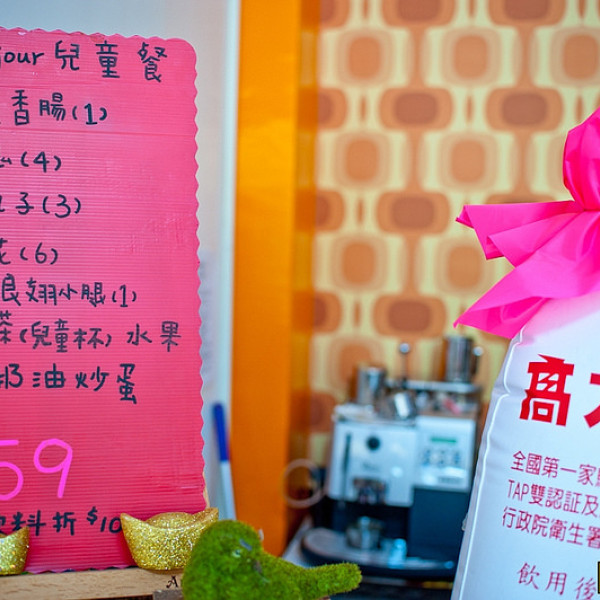 our 兒童餐
香腸(1)
(4)
子(3)
花(6)
翅小腿(1)
茶(兒童杯) 水果
奶油炒蛋
59
料折 $10
高
全國第一家
TAP雙認証及
行政院衛生署
飲用後